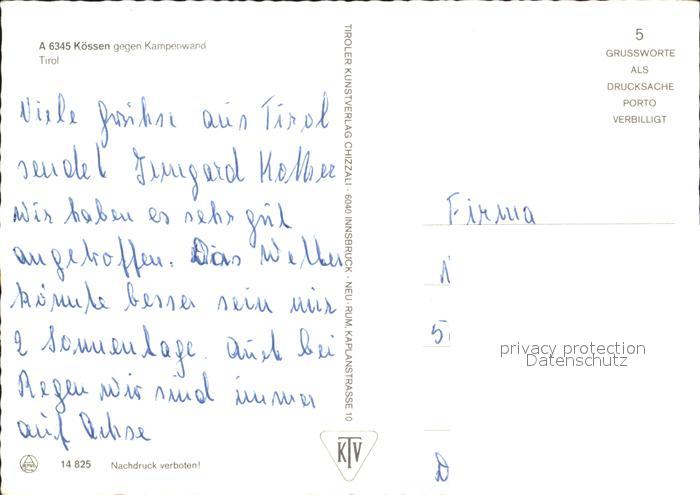 A 6345 Kössen gegen Kampenwand
Tirol
5
GRUSSWORTE
ALS
DRUCKSACHE
PORTO
VERBILLIGT
Viele Grüße aus Tirol
sendet Irmgard
Wir haben es sehr gut
angetroffen. Das Wetter
könnte besser sein nur
2 Sonnentage. Auch bei
Regen wir sind immer
auf Achse
14 825 Nachdruck verboten!
TIROLER KUNSTVERLAG CHIZZALI · 6040 INNSBRUCK · NEU-RUM, KAPLANSTRASSE 10
KTV
Firma
N
5
D
privacy protection
Datenschutz